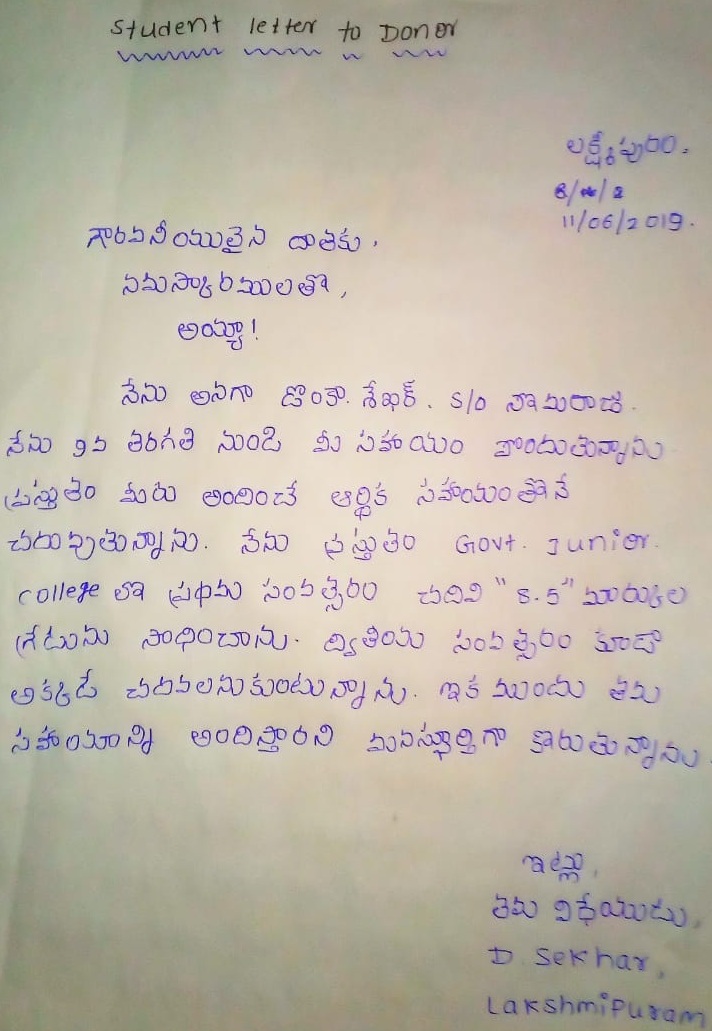 Student letter to Donor
లక్ష్మీపురం.
11/06/2019.
గౌరవనీయులైన దాతకు,
నమస్కారములతో,
అయ్యా!
నేను అనగా డొంకా. శేఖర్. S/o సోమరాజు.
నేను 9వ తరగతి నుండి మీ సహాయం పొందుతున్నాను
ప్రస్తుతం మీరు అందించే ఆర్థిక సహాయంతోనే
చదువుతున్నాను. నేను ప్రస్తుతం Govt. Junior.
college లో ప్రథమ సంవత్సరం చదివి "8.5" మార్కుల
గ్రేటును సాధించాను. ద్వితీయ సంవత్సరం కూడా
అక్కడే చదవలనుకుంటున్నాను. ఇక ముందు తమ
సహాయాన్ని అందిస్తారని మనస్ఫూర్తిగా కోరుతున్నాను.
ఇట్లు,
తమ విధేయుడు,
D. Sekhar,
Lakshmipuram